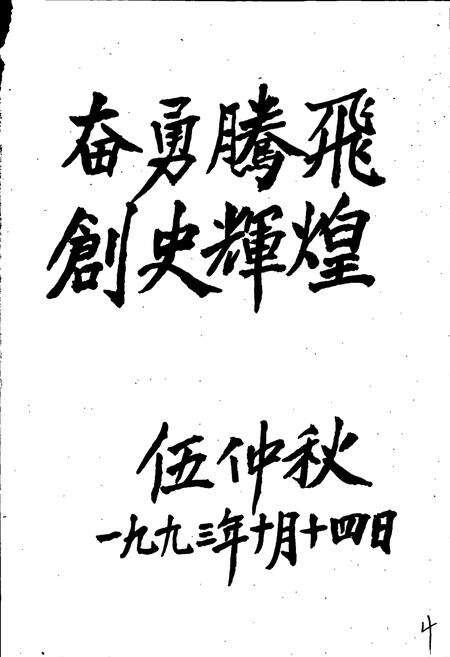 奋勇騰飛
創史輝煌
伍仲秋
一九九三年十月十四日
4